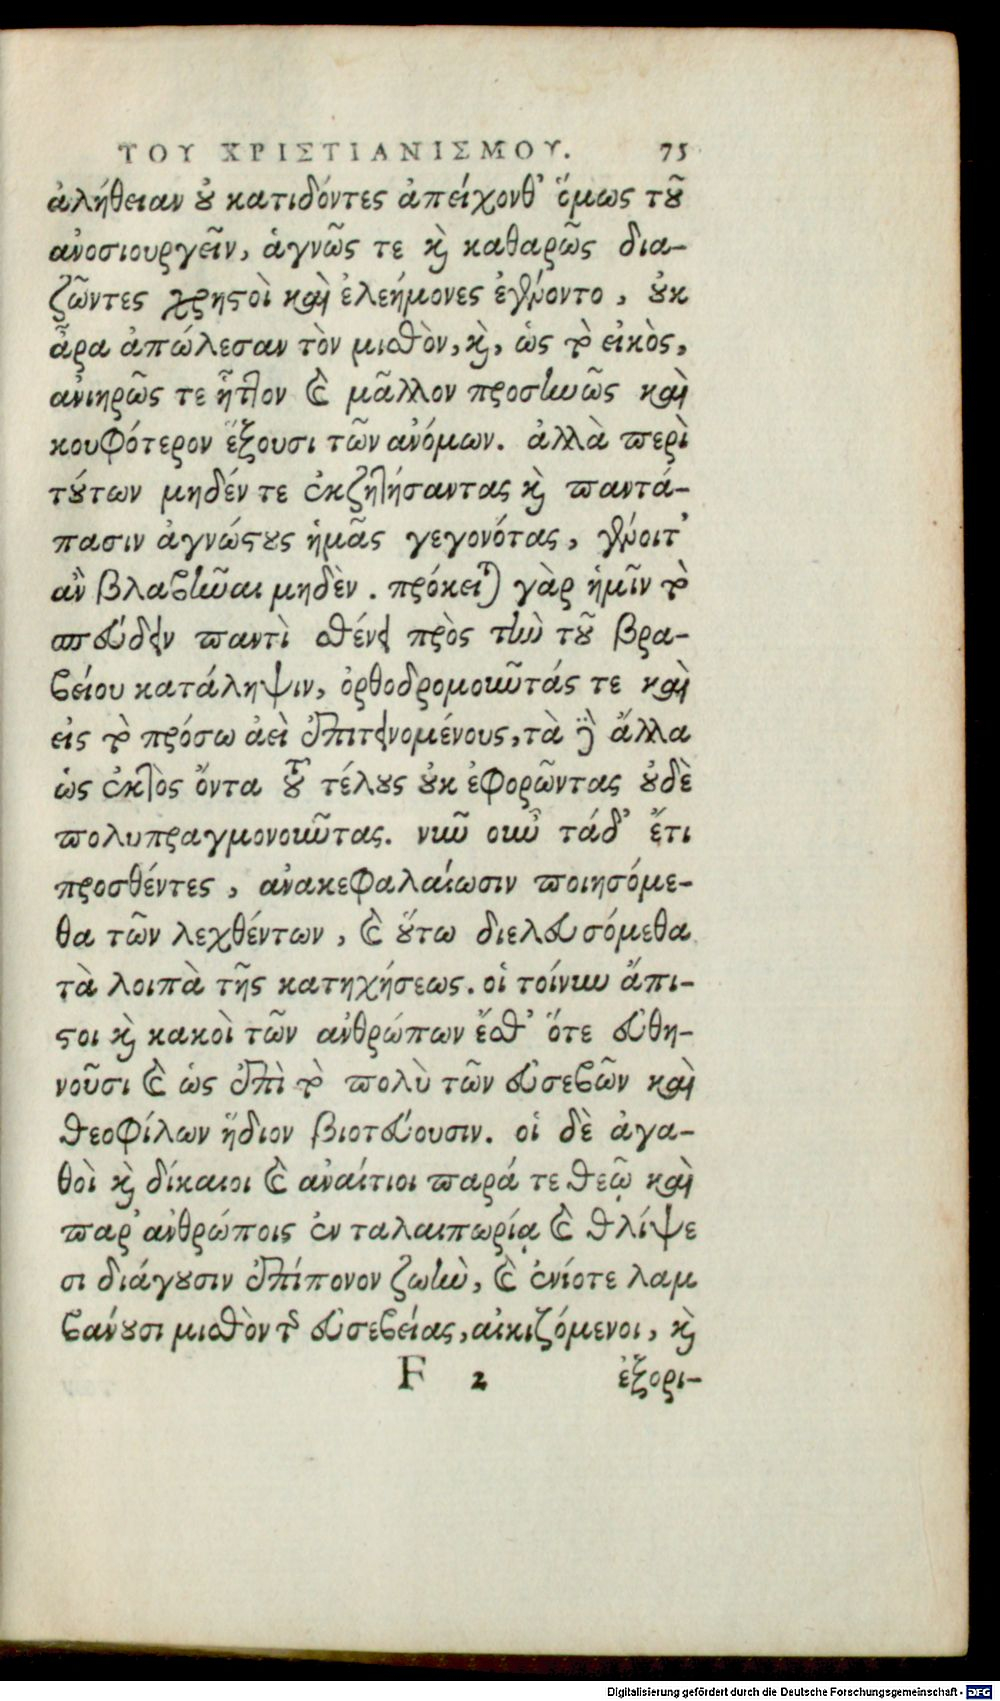 ΤΟΥ ΧΡΙΣΤΙΑΝΙΣΜΟΥ. 75
ἀλήθειαν ȣ̓ κατιδόντες ἀπείχονθ᾽ ὅμως τȣ͂
ἀνοσιουργεῖν, ἁγνῶς τε ϗ̀ καθαρῶς δια-
ζῶντες χρηϛοὶ καὶ ἐλεήμονες ἐγένοντο, ȣ̓κ
ἆρα ἀπώλεσαν τὸν μισθὸν, ϗ̀, ὡς τὸ εἰκὸς,
ἀνιηρῶς τε ἧττον καὶ μᾶλλον προσηνῶς καὶ
κουφότερον ἕξουσι τῶν ἀνόμων. ἀλλὰ περὶ
τȣ́των μηδέν τε ἐκζητήσαντας ϗ̀ παντά-
πασιν ἀγνώϛȣς ἡμᾶς γεγονότας, γένοιτ᾽
ἂν βλαβῆναι μηδὲν. πρόκειται γὰρ ἡμῖν τὸ
σπεύδειν παντὶ σθένει πρὸς τὴν τȣ͂ βρα-
βείου κατάληψιν, ὀρθοδρομοιῶτάς τε καὶ
εἰς τὸ πρόσω ἀεὶ ἐπιτεινομένους, τὰ δὲ ἄλλα
ὡς ἐκτὸς ὄντα τȣ͂ τέλȣς ȣ̓κ ἐφορῶντας ȣ̓δὲ
πολυπραγμονοιῶτας. νιῶ οιῶ τάδ᾽ ἔτι
προσθέντες, ἀνακεφαλαίωσιν ποιησόμε-
θα τῶν λεχθέντων, καὶ ȣ̔́τω διελευσόμεθα
τὰ λοιπὰ τῆς κατηχήσεως. οἱ τοίνυν ἄπι-
ϛοι ϗ̀ κακοὶ τῶν ἀνθρώπων ἔσθ᾽ ὅτε εὐθη-
νοῦσι καὶ ὡς ἐπὶ τὸ πολὺ τῶν εὐσεβῶν καὶ
θεοφίλων ἥδιον βιοτεύουσιν. οἱ δὲ ἀγα-
θοὶ ϗ̀ δίκαιοι καὶ ἀναίτιοι παρά τε θεῷ καὶ
παρ᾽ ἀνθρώποις ἐν ταλαιπωρίᾳ καὶ θλίψε
σι διάγȣσιν ἐπίπονον ζωὴν, καὶ ἐνίοτε λαμ
βάνȣσι μισθὸν τῆς εὐσεβείας, αἰκιζόμενοι, ϗ̀
F 2 ἐξορι-
Digitalisierung gefördert durch die Deutsche Forschungsgemeinschaft - DFG